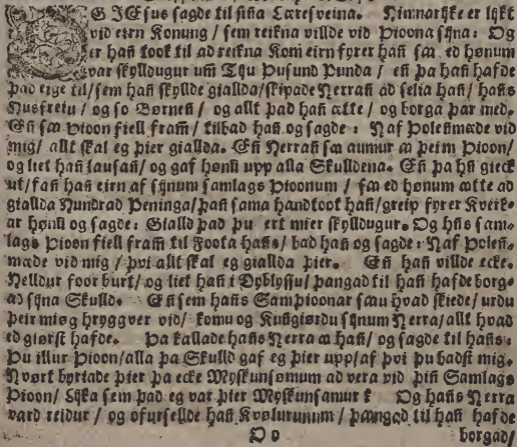 OG JEsus sagde til sijna Læresveina. Himnarijke er lijkt
vid eirn Konung / sem reikna villde vid Þioona sijna: Og
er hañ took til ad reikna Kom eirn fyrer hañ sæ ed hønum
var skylldugur um Tiju Þusund Punda / eñ þa hañ hafde
þad eige til/sem hañ skyllde gialda/skipade Herrañ ad selia hañ/ hañs
Husfreiu / og so Børneñ / og allt þad hañ ætte / og borga þar med.
Eñ sæ Þioon fiell framm / tilbad hañ og sagde: Haf Poleñmæde vid
mig/ allt skal eg þier gialda. Eñ Herrañ sæ aumur æ þeim Þioon/
og liet hañ lausañ/ og gaf hønū upp alla Skulldena. Eñ þa hñ gieck
ut/fañ hañ eirn af sijnum samlags Þioonum / sæ ed hønum ætte ad
gialda Hundrad Peninga/þañ sama handtook hañ/greip fyrer Kverk-
ar hønū og sagde: Giallد þad þu ert mier skylldugur. Og hñs sam-
lags Þioon fiell framm til Foota hañs/ bad hañ og sagde: Haf Poleñ-
mæde vid mig / þvi allt skal eg giallda þier. Eñ hañ villde ecke.
Helldur foor burt/ og liet hañ i Dyblyssu/ þangad til hañ hafde borg-
ad sijna Skulld. Eñ sem hañs Samþioonar sæu hvad skiede/ urdu
þeir miøg hryggver vid/ komu og Kuñgiørdu sijnum Herra/allt hvad
ed giørst hafde. Þa kallade hañs Herra æ hañ/ og sagde til hañs:
Þu illur Þioon/alla þa Skulld gaf eg þier upp/af þvi þu badst mig.
Hvørt byriade þier þa ecke Myskunsømum ad vera vid þiñ Samlags
Þioon/ Lijka sem þad eg var þier Myskunsamur? Og hañs Herra
vard reidur/ og ofurseldde hañ Kvølurunum / þangad til hañ hafde
O o borgad/